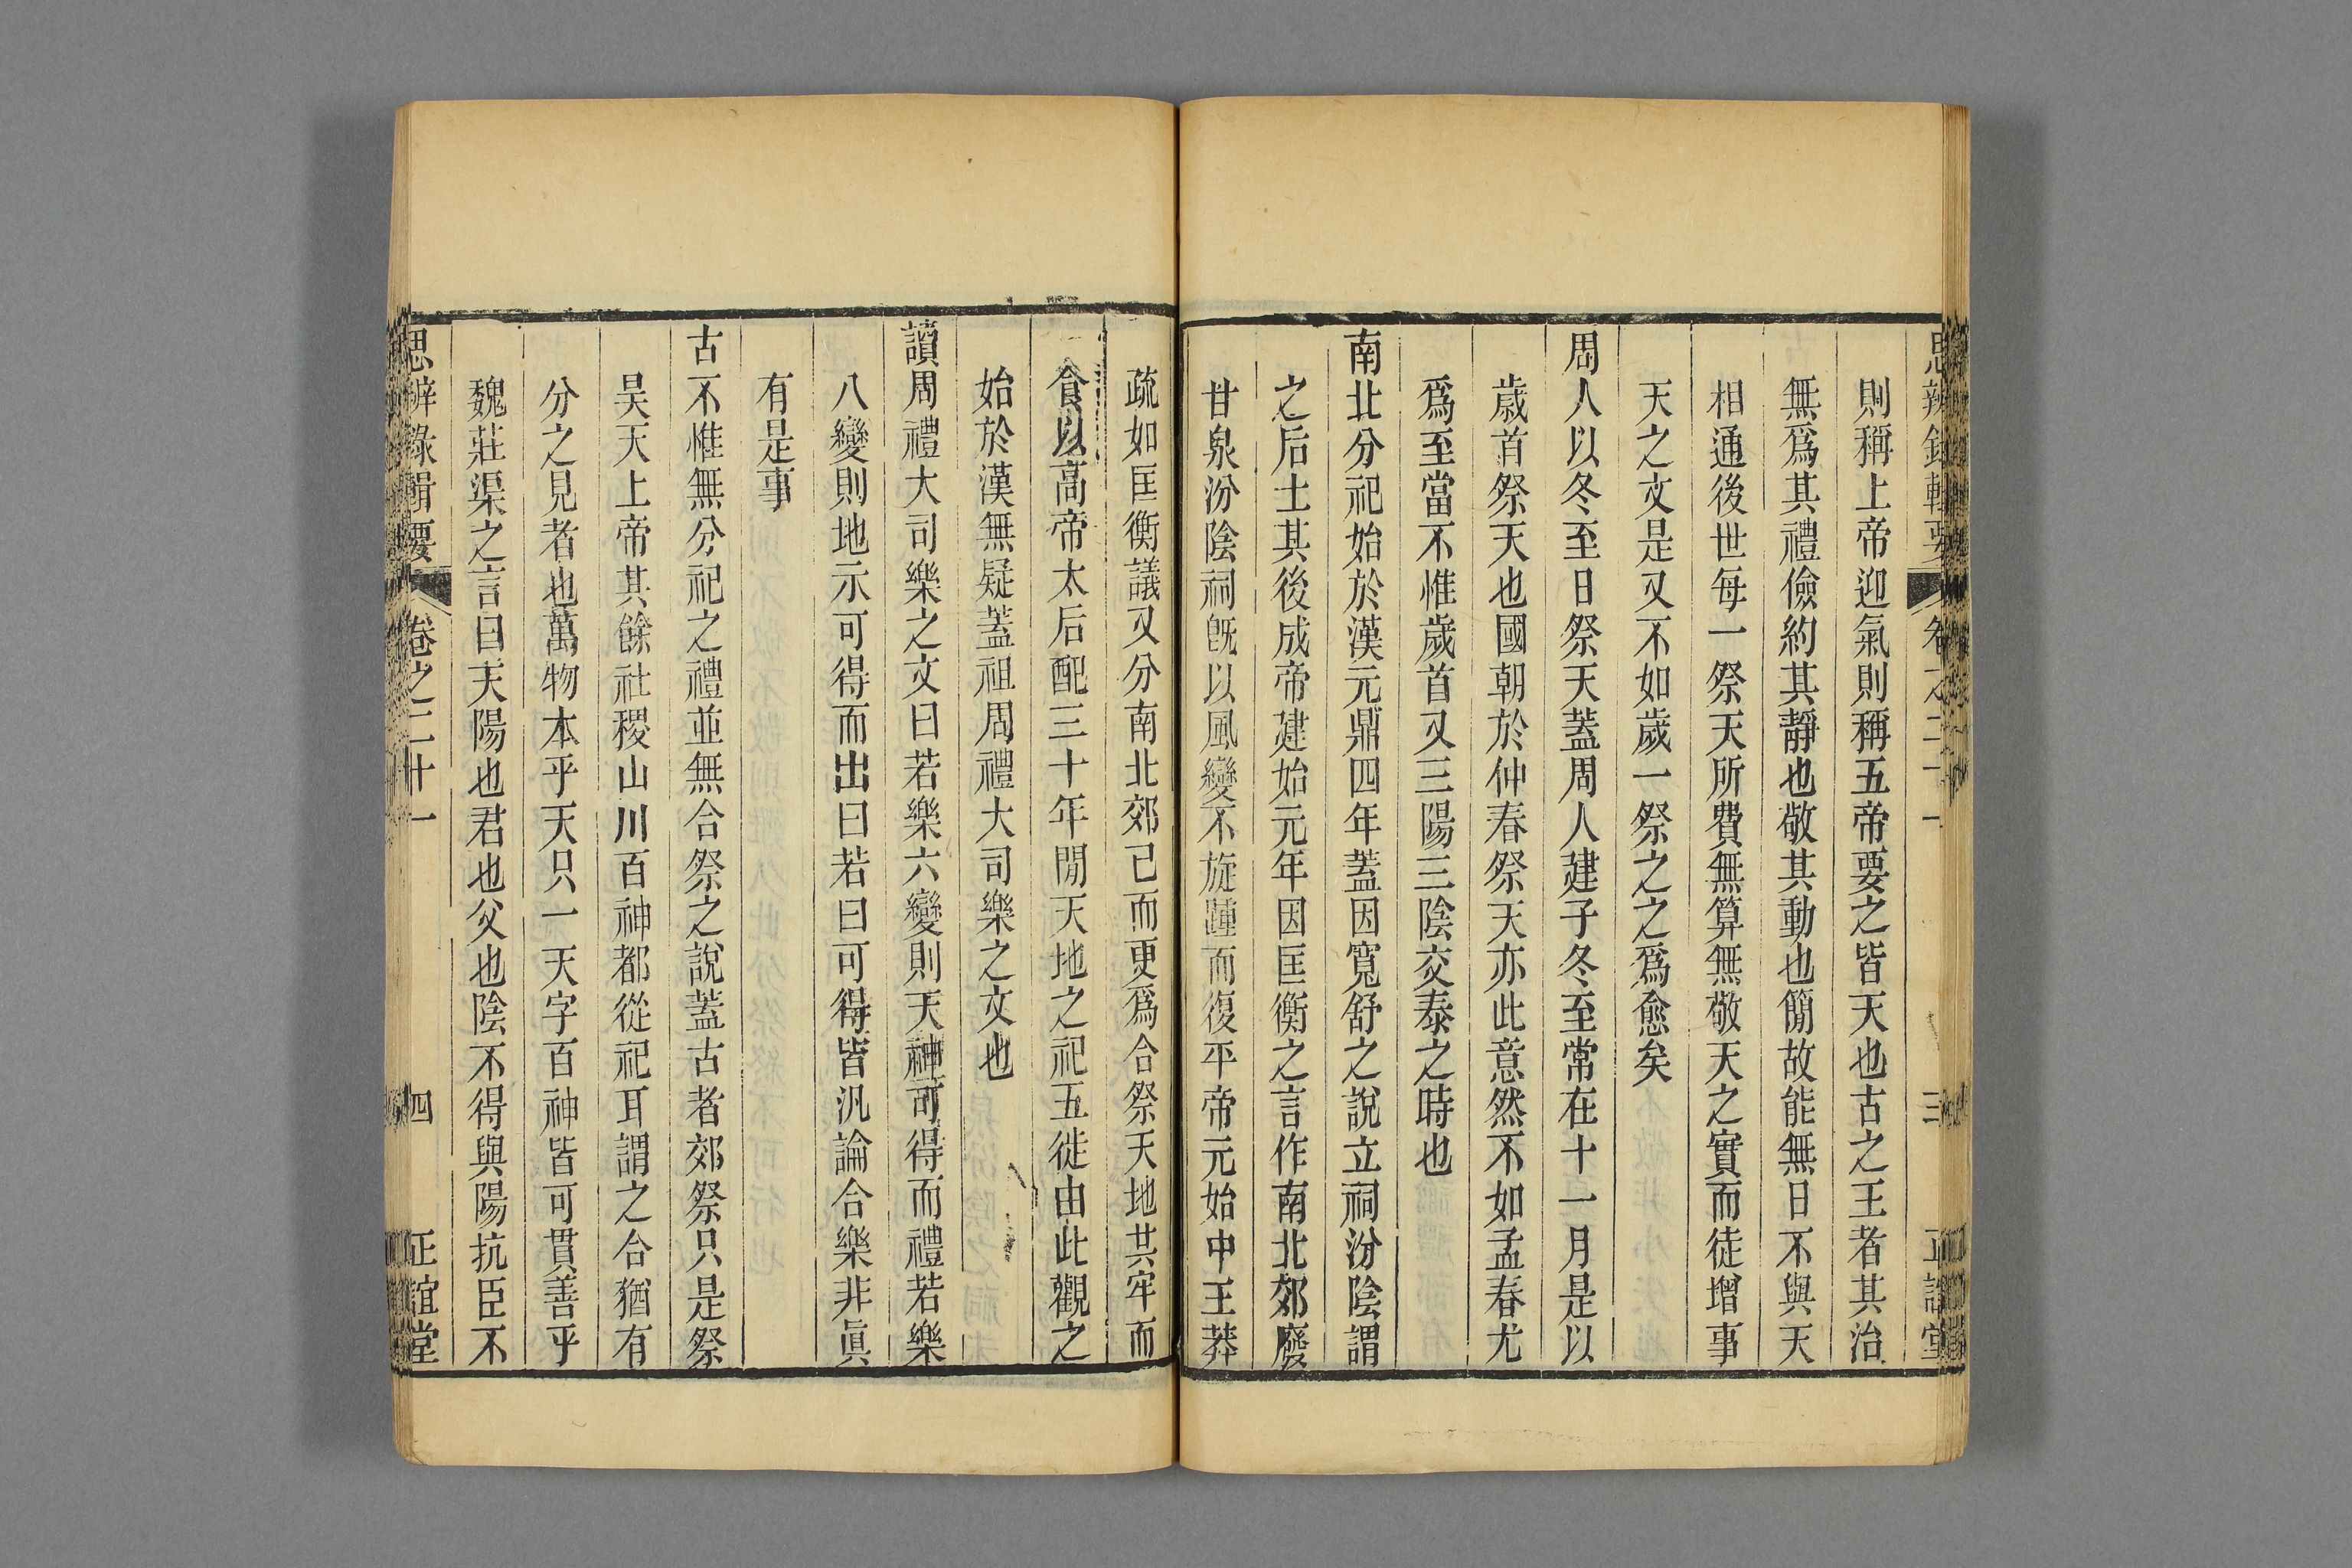 思辨錄輯要 卷之二十一 三 正誼堂
則稱上帝迎氣則稱五帝要之皆天也古之王者其治
無爲其禮儉約其靜也敬其動也簡故能無日不與天
相通後世每一祭天所費無算無敬天之實而徒增事
天之文是又不如歲一祭之之爲愈矣
周人以冬至日祭天蓋周人建子冬至常在十一月是以
歲首祭天也國朝於仲春祭天亦此意然不如孟春尤
爲至當不惟歲首又三陽三陰交泰之時也
南北分祀始於漢元鼎四年蓋因寬舒之說立祠汾陰謂
之后土其後成帝建始元年因匡衡之言作南北郊廢
甘泉汾陰祠旣以風變不旋踵而復平帝元始中王莽
疏如匡衡議又分南北郊已而更爲合祭天地共牢而
食以高帝太后配三十年閒天地之祀五徙由此觀之
始於漢無疑蓋祖周禮大司樂之文也
讀周禮大司樂之文曰若樂六變則天神可得而禮若樂
八變則地示可得而出曰若曰可得皆汎論合樂非眞
有是事
古不惟無分祀之禮並無合祭之說蓋古者郊祭只是祭
昊天上帝其餘社稷山川百神都從祀耳謂之合猶有
分之見者也萬物本乎天只一天字百神皆可貫善乎
魏莊渠之言曰天陽也君也父也陰不得與陽抗臣不
思辨錄輯要 卷之二十一 四 正誼堂